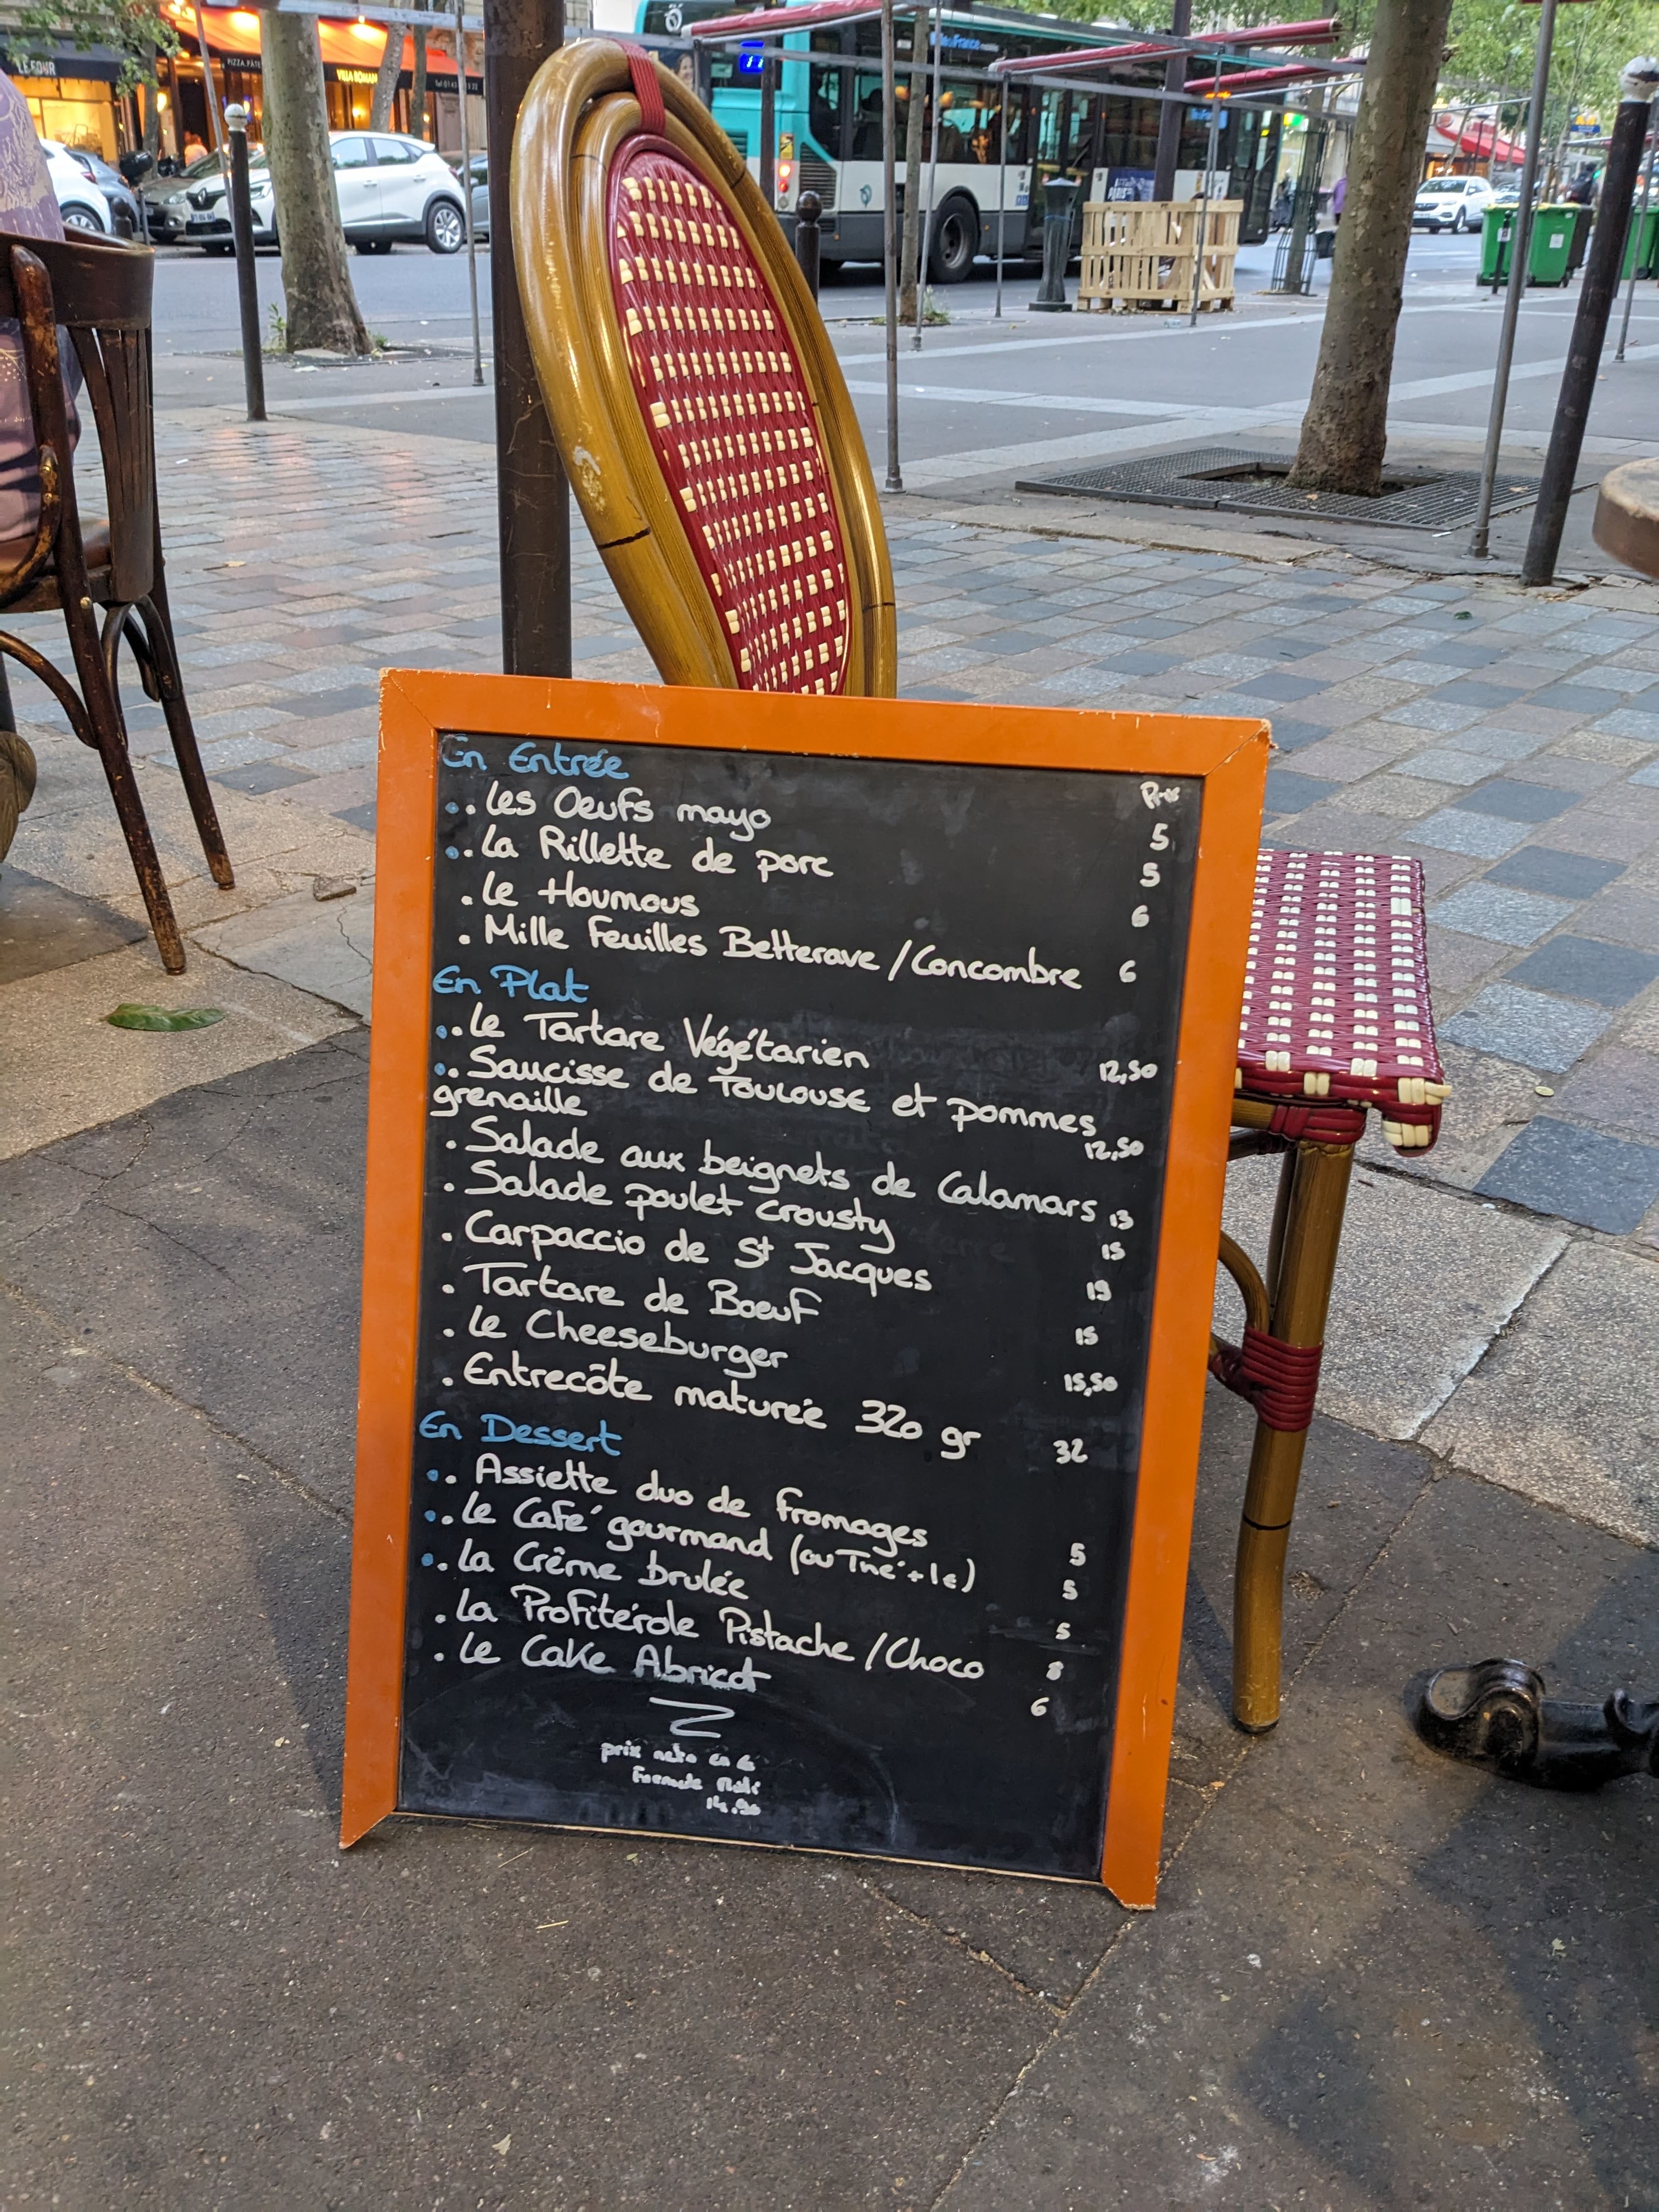 LE FOUR
PIZZA, PÂTE
VILLA ROMAN
En Entrée
Prix
. Les Oeufs mayo 5
. La Rillette de porc 5
. Le Houmous 6
. Mille Feuilles Betterave / Concombre 6
En Plat
. Le Tartare Végétarien 12,50
. Saucisse de Toulouse et pommes
grenaille 12,50
. Salade aux beignets de Calamars 13
. Salade poulet Crousty 15
. Carpaccio de St Jacques 19
. Tartare de Boeuf 15
. Le Cheeseburger 15,50
. Entrecôte maturée 320 gr 32
En Dessert
. Assiette duo de fromages 5
. Le Café gourmand (ou Thé + 1€) 5
. La Crême brulée 5
. La Profitérole Pistache / Choco 8
. Le Cake Abricot 6
prix nets en €
Formule
14.90